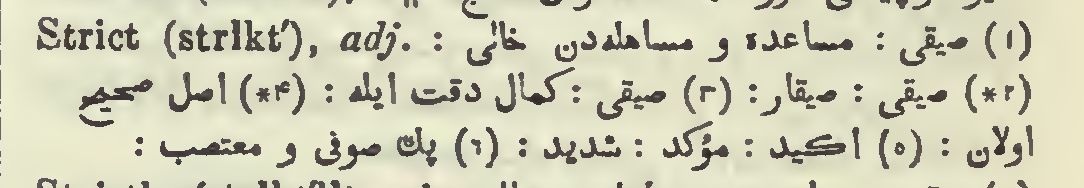 Strict (strlkt′), adj. (١) صیقی : مساعده و مساهله‌دن خالی :
(٢*) صیقی : صیقار : (٣) صیقی : کمال دقت ایله : (۴*) اصل صحیح
اولان : (٥) اکید : مؤکد : شدید : (٦) پك صوفی و معتصب :